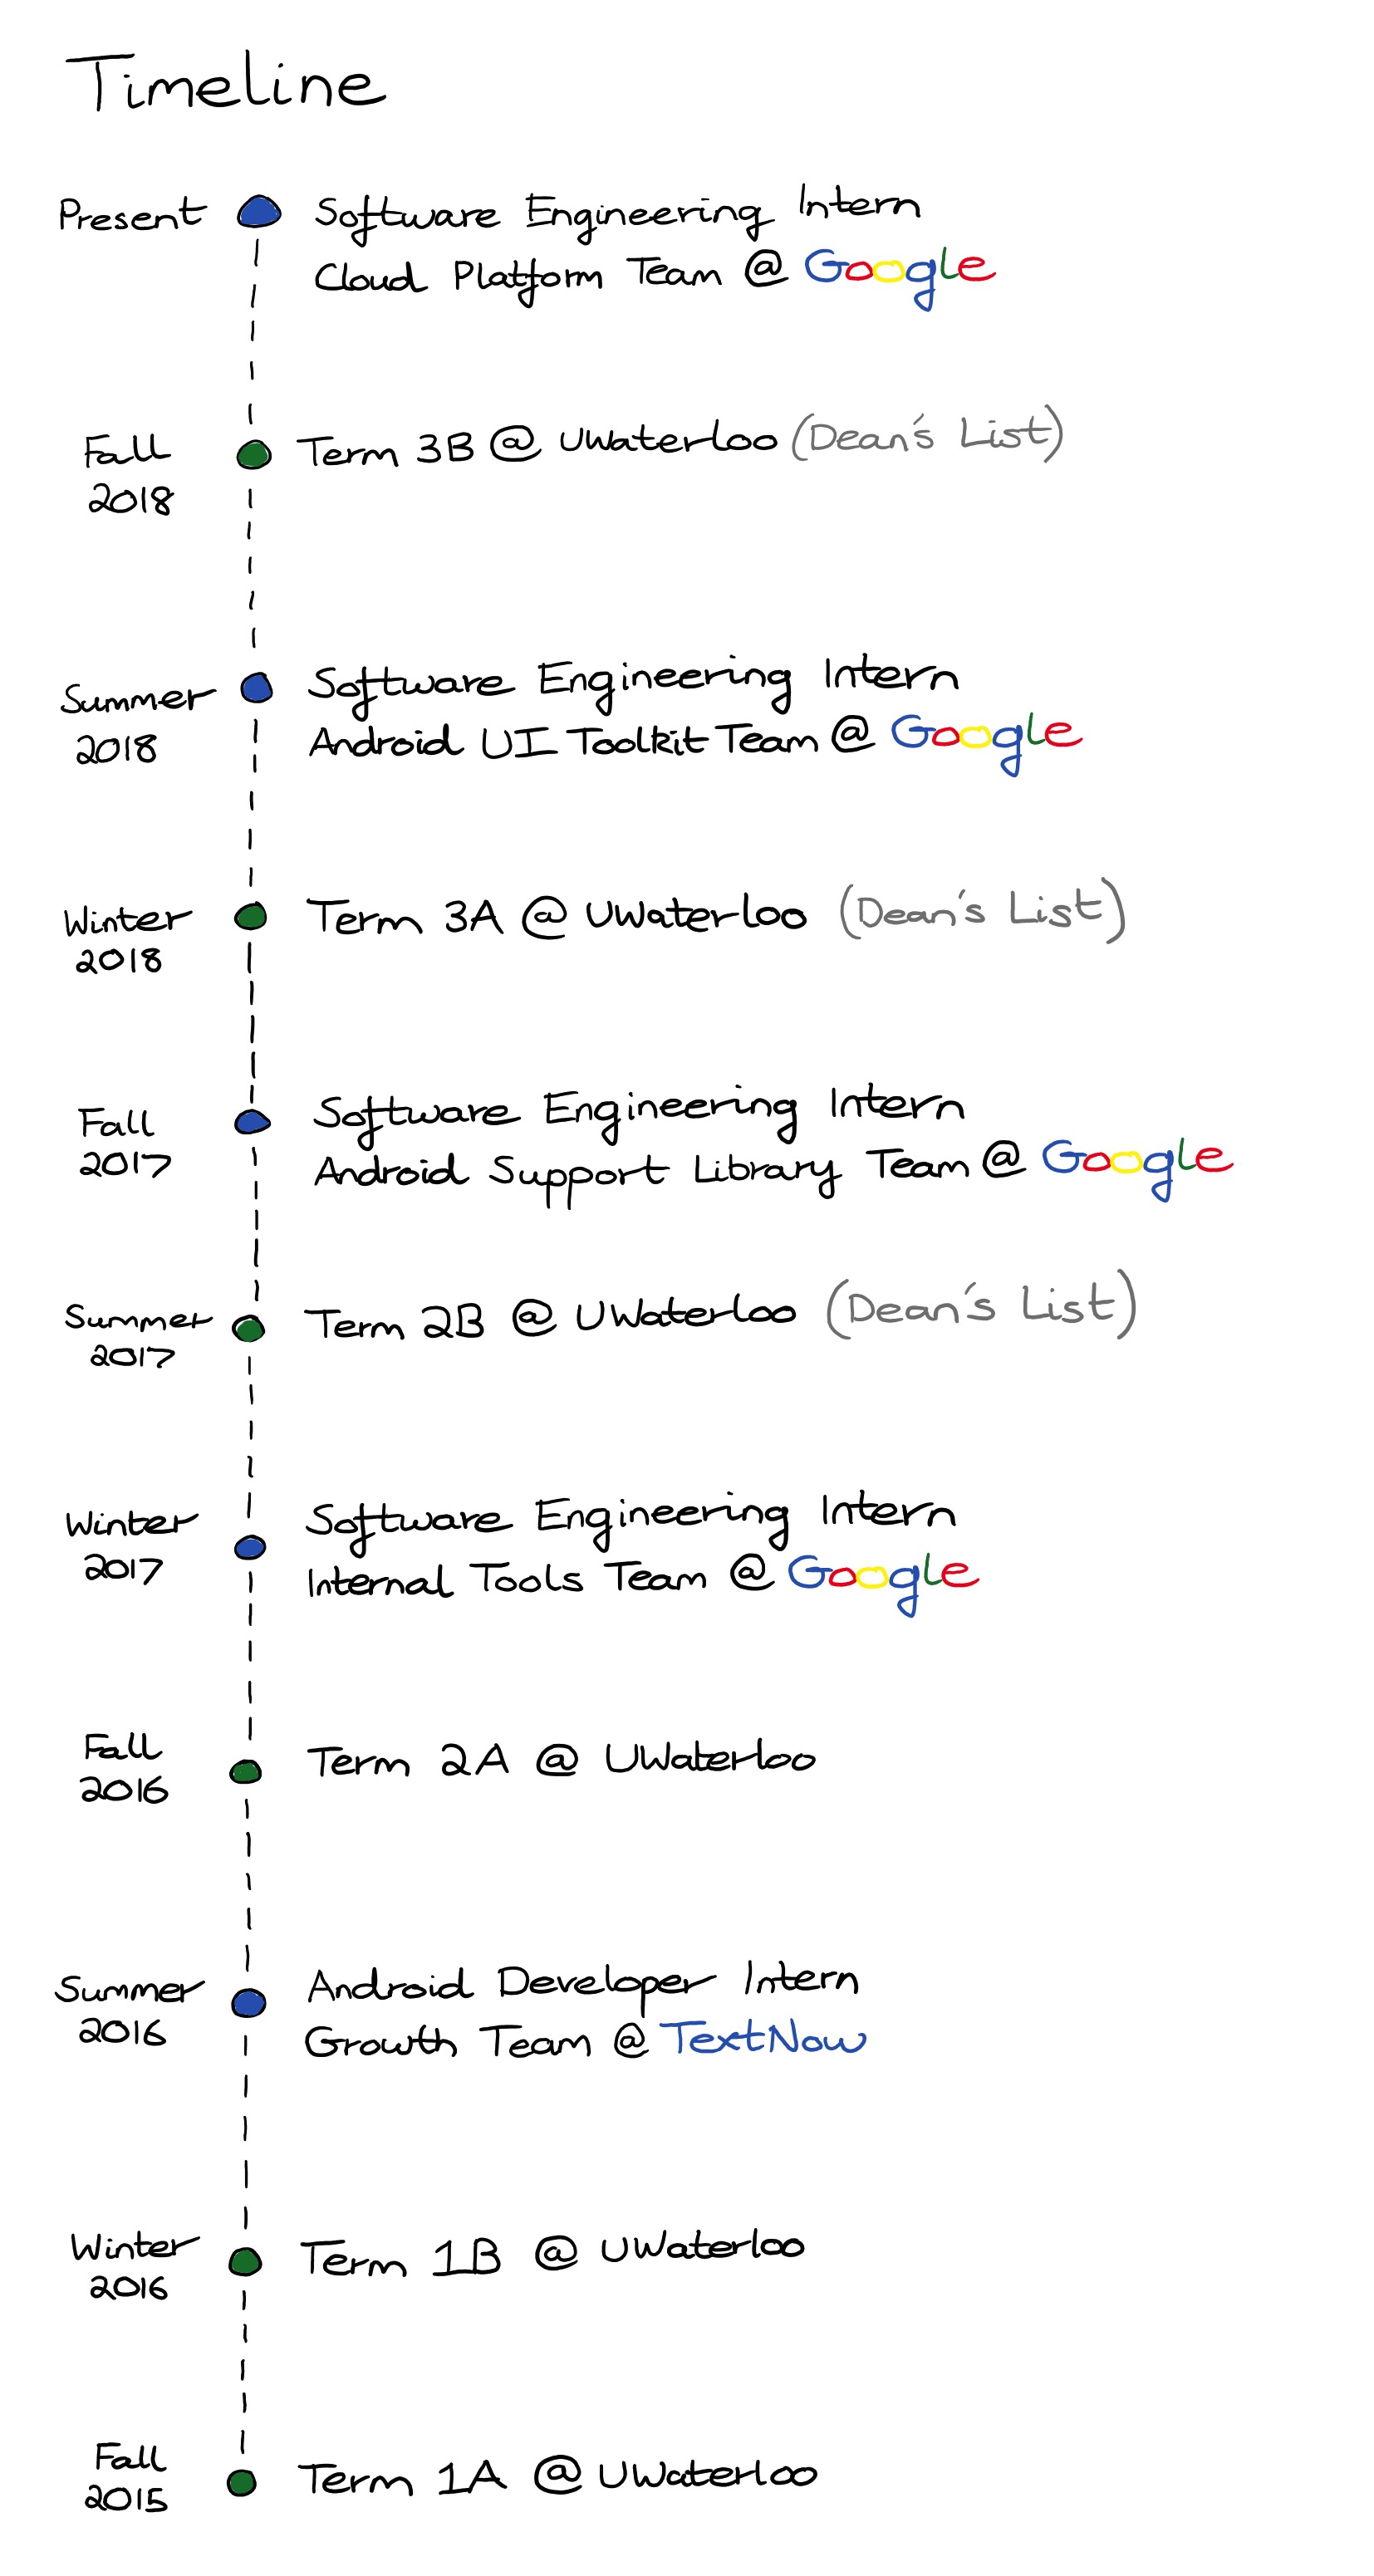 Timeline
Present
Software Engineering Intern
Cloud Platform Team @ Google
Fall
2018
Term 3B @ UWaterloo (Dean's List)
Summer
2018
Software Engineering Intern
Android UI Toolkit Team @ Google
Winter
2018
Term 3A @ UWaterloo (Dean's List)
Fall
2017
Software Engineering Intern
Android Support Library Team @ Google
Summer
2017
Term 2B @ UWaterloo (Dean's List)
Winter
2017
Software Engineering Intern
Internal Tools Team @ Google
Fall
2016
Term 2A @ UWaterloo
Summer
2016
Android Developer Intern
Growth Team @ TextNow
Winter
2016
Term 1B @ UWaterloo
Fall
2015
Term 1A @ UWaterloo